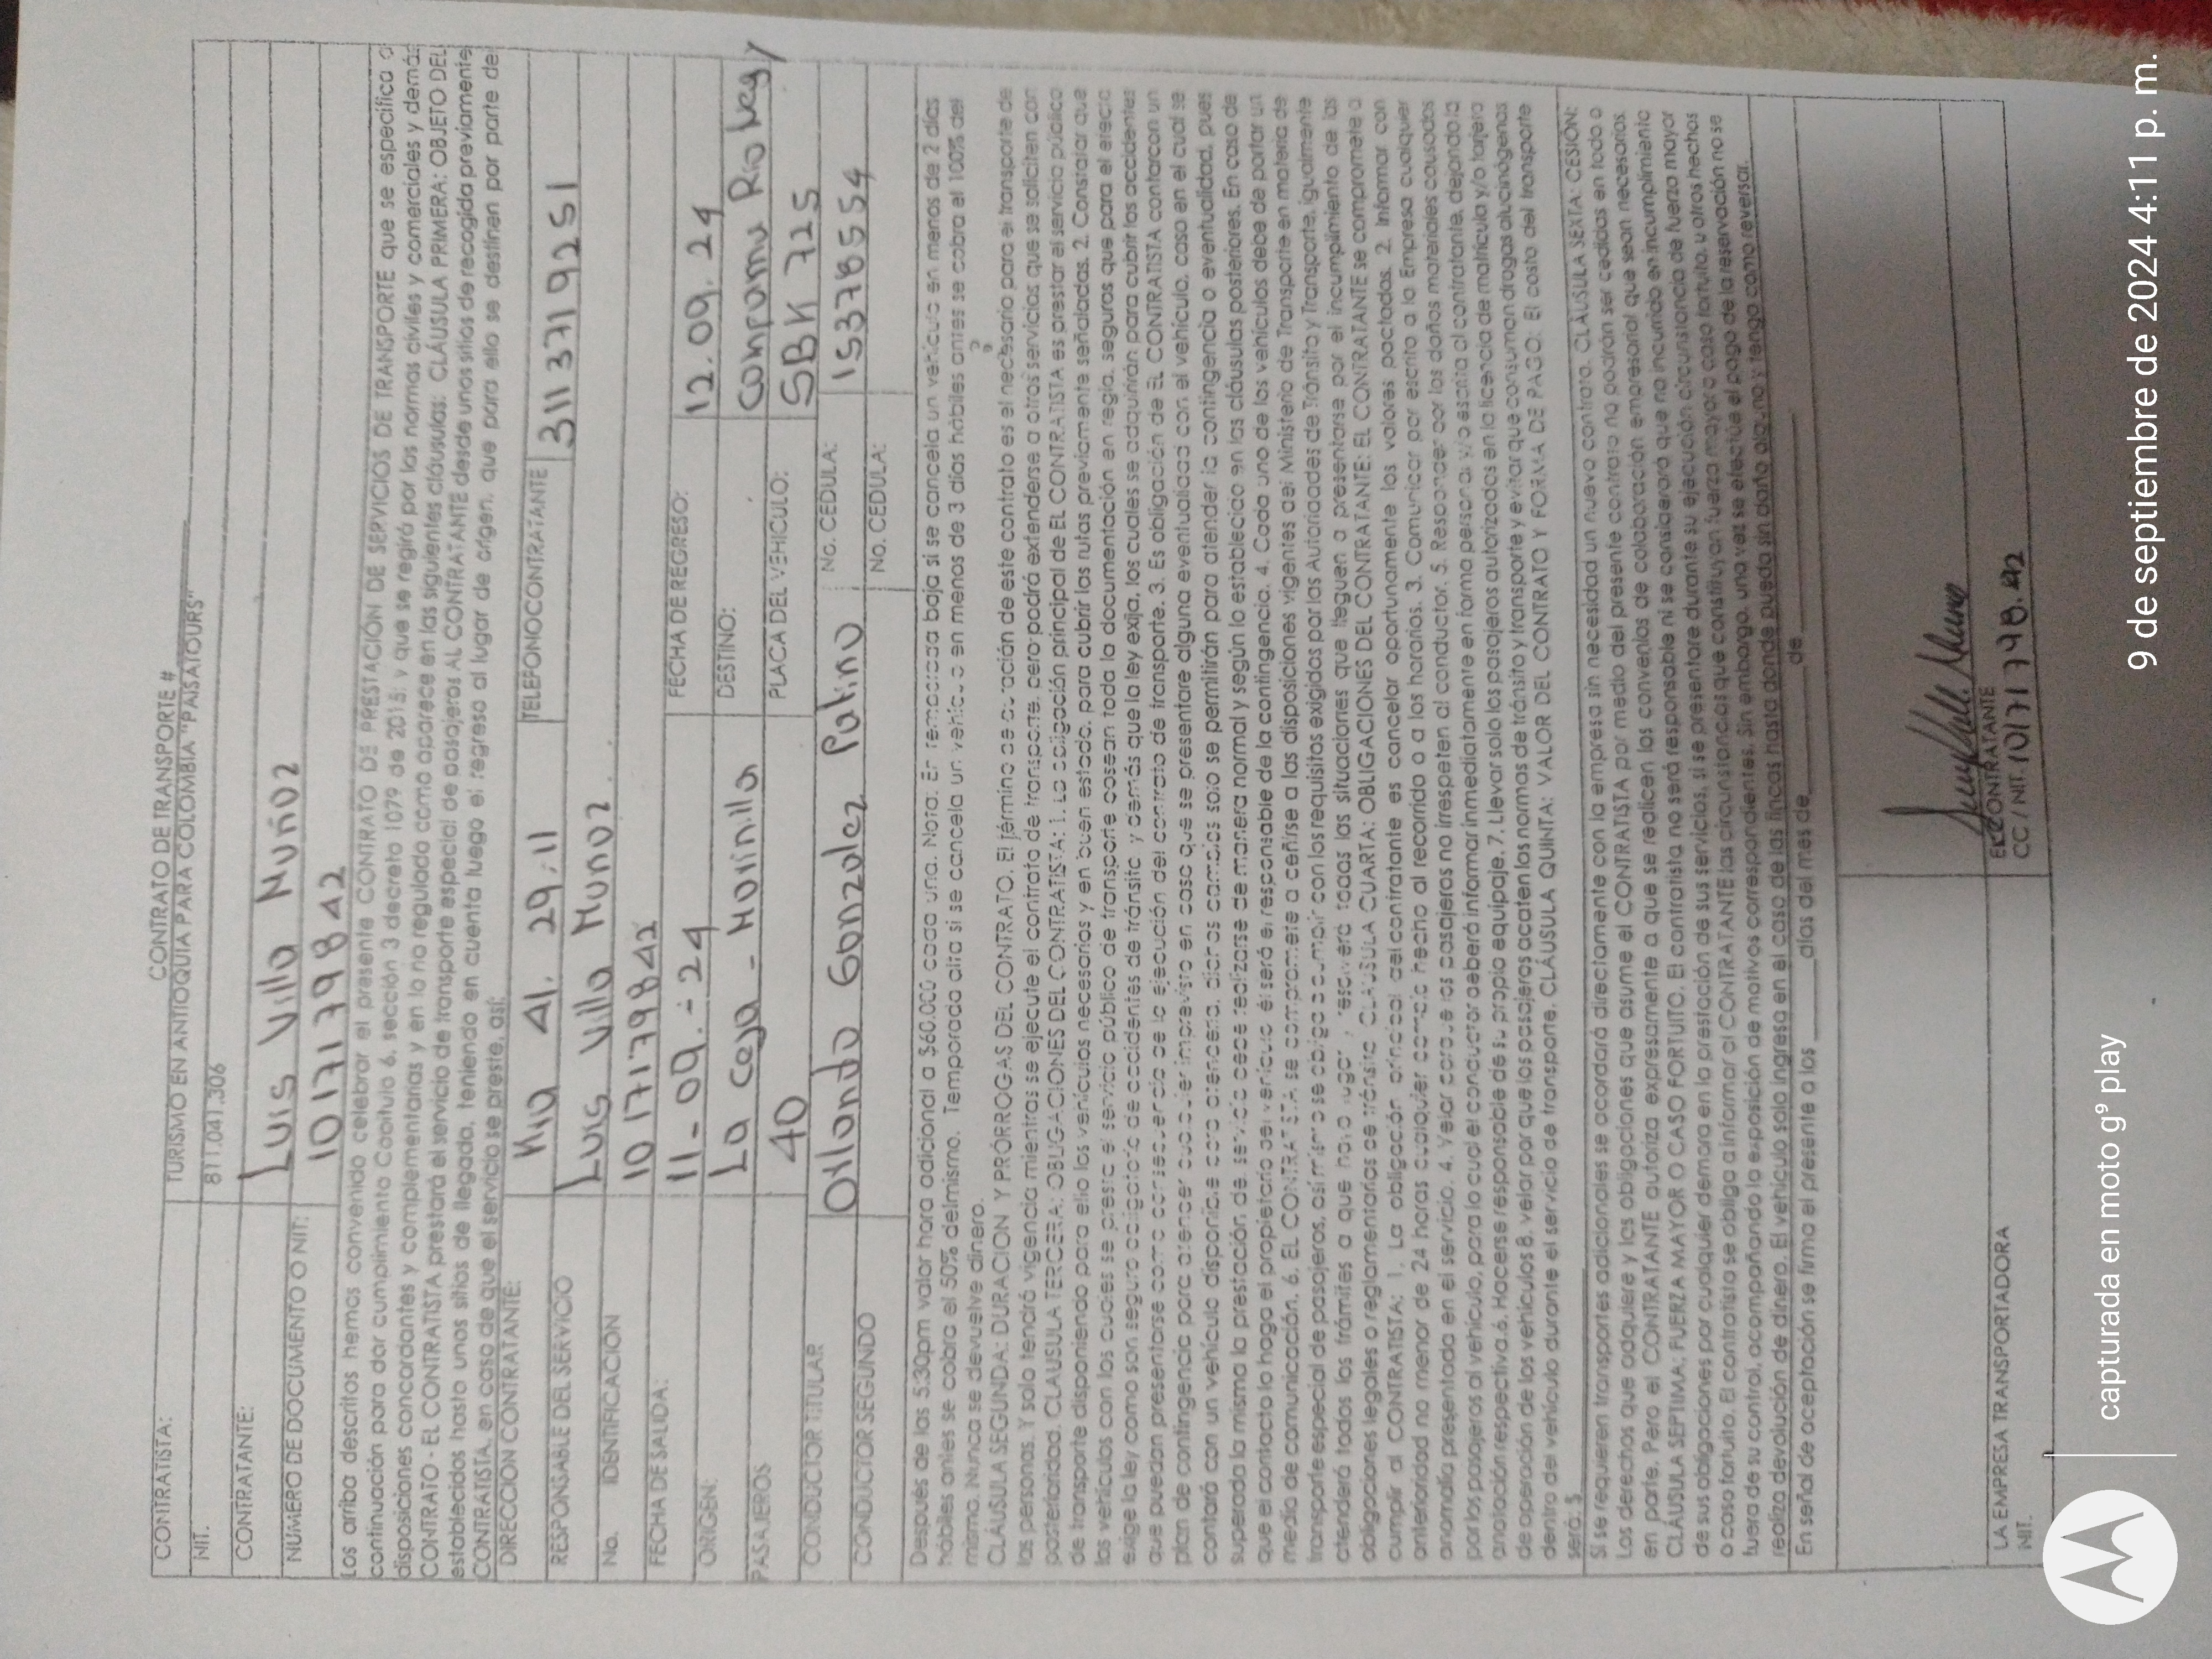 CONTRATO DE TRANSPORTE #
CONTRATISTA: TURISMO EN ANTIOQUIA PARA COLOMBIA "PAISATOURS"
NIT. 811.041.306
CONTRATANTE: Luis Villa Muñoz
NUMERO DE DOCUMENTO O NIT: 1017179842
Los arriba descritos hemos convenido celebrar el presente CONTRATO DE PRESTACIÓN DE SERVICIOS DE TRANSPORTE que se especifica a
continuación para dar cumplimiento Capitulo 6, sección 3 decreto 1079 de 2015; y que se regirá por las normas civiles y comerciales y demás
disposiciones concordantes y complementarias y en lo no regulado como aparece en las siguientes cláusulas: CLÁUSULA PRIMERA: OBJETO DEL
CONTRATO - EL CONTRATISTA prestará el servicio de transporte especial de pasajeros AL CONTRATANTE desde unos sitios de recogida previamente
establecidos hasta unos sitios de llegada, teniendo en cuenta luego el regreso al lugar de origen, que para ello se destinen por parte del
CONTRATISTA, en caso de que el servicio se preste, así:
DIRECCIÓN CONTRATANTE: 41. 29.11 TELEFONOCONTRATANTE 3113719251
RESPONSABLE DEL SERVICIO Luis Villa Munoz
No. IDENTIFICACION 1017179842
FECHA DE SALIDA: 11-09-24 FECHA DE REGRESO: 12.09.24
ORIGEN: La Ceja - DESTINO:
PASAJEROS 40 PLACA DEL VEHICULO: SBK 725
CONDUCTOR TITULAR Orlando Gonzalez Patino No. CEDULA: 15378554
CONDUCTOR SEGUNDO No. CEDULA:
Después de las 5:30pm valor hora adicional a $60.000 cada una. Nota: En temporada baja si se cancela un vehículo en menos de 2 días
hábiles antes se cobra el 50% del mismo. Temporada alta si se cancela un vehículo en menos de 3 días hábiles antes se cobra el 100% del
mismo. Nunca se devuelve dinero.
CLÁUSULA SEGUNDA: DURACION Y PRÓRROGAS DEL CONTRATO. El término de duración de este contrato es el necesario para el transporte de
las personas. Y solo tendrá vigencia mientras se ejecute el contrato de transporte, pero podrá extenderse a otros servicios que se soliciten con
posterioridad. CLAUSULA TERCERA: OBLIGACIONES DEL CONTRATISTA: 1. La obligación principal de EL CONTRATISTA es prestar el servicio público
de transporte disponiendo para ello los vehículos necesarios y en buen estado, para cubrir las rutas previamente señaladas. 2. Constatar que
los vehículos con los cuales se presta el servicio público de transporte posean toda la documentación en regla, seguros que para el efecto
exige la ley como son seguro obligatorio de accidentes de tránsito y demás que la ley exija, los cuales se adquirirán para cubrir los accidentes
que puedan presentarse como consecuencia de la ejecución del contrato de transporte. 3. Es obligación de EL CONTRATISTA contar con un
plan de contingencia para atender cualquier imprevisto en caso que se presentare alguna eventualidad con el vehículo, caso en el cual se
contará con un vehículo disponible para atenderla, dichos cambios solo se permitirán para atender la contingencia o eventualidad, pues
superada la misma la prestación del servicio debe realizarse de manera normal y según lo establecido en las cláusulas posteriores. En caso de
que el contacto lo haga el propietario del vehículo él será el responsable de la contingencia. 4. Cada uno de los vehículos debe de portar un
medio de comunicación. 6. EL CONTRATISTA se compromete a ceñirse a las disposiciones vigentes del Ministerio de Transporte en materia de
transporte especial de pasajeros, así mismo se obliga a cumplir con los requisitos exigidos por las Autoridades de Tránsito y Transporte, igualmente
atenderá todos los trámites a que haya lugar y resolverá todas las situaciones que lleguen a presentarse por el incumplimiento de las
obligaciones legales o reglamentarias de tránsito CLÁUSULA CUARTA: OBLIGACIONES DEL CONTRATANTE: EL CONTRATANTE se compromete a
cumplir al CONTRATISTA: 1. La obligación principal del contratante es cancelar oportunamente los valores pactados. 2. Informar con
anterioridad no menor de 24 horas cualquier cambio hecho al recorrido o a los horarios. 3. Comunicar por escrito a la Empresa cualquier
anomalía presentada en el servicio. 4. Velar porque los pasajeros no irrespeten al conductor. 5. Responder por los daños materiales causados
por los pasajeros al vehículo, para lo cual el conductor deberá informar inmediatamente en forma personal y/o escrita al contratante, dejando la
anotación respectiva. 6. Hacerse responsable de su propio equipaje. 7. Llevar solo los pasajeros autorizados en la licencia de matrícula y/o tarjeta
de operación de los vehículos 8. velar por que los pasajeros acaten las normas de tránsito y transporte y evitar que consuman drogas alucinógenas
dentro del vehículo durante el servicio de transporte. CLÁUSULA QUINTA: VALOR DEL CONTRATO Y FORMA DE PAGO: El costo del transporte
será: $
Si se requieren transportes adicionales se acordará directamente con la empresa sin necesidad un nuevo contrato. CLÁUSULA SEXTA: CESIÓN:
Los derechos que adquiere y las obligaciones que asume el CONTRATISTA por medio del presente contrato no podrán ser cedidas en todo o
en parte. Pero el CONTRATANTE autoriza expresamente a que se realicen los convenios de colaboración empresarial que sean necesarios.
CLÁUSULA SEPTIMA: FUERZA MAYOR O CASO FORTUITO. El contratista no será responsable ni se considerara que ha incurrido en incumplimiento
de sus obligaciones por cualquier demora en la prestación de sus servicios, si se presentare durante su ejecución circunstancia de fuerza mayor
o caso fortuito. El contratista se obliga a informar al CONTRATANTE las circunstancias que constituyan fuerza mayor o caso fortuito, u otros hechos
fuera de su control, acompañando la exposición de motivos correspondientes. Sin embargo, una vez se efectúe el pago de la reservación no se
realiza devolución de dinero. El vehículo solo ingresa en el caso de las fincas hasta donde pueda sin daño alguno y tenga como reversar.
En señal de aceptación se firma el presente a los días del mes de de
LA EMPRESA TRANSPORTADORA
NIT.
EL CONTRATANTE
CC / NIT.
capturada en moto g⁹ play
9 de septiembre de 2024 4:11 p. m.